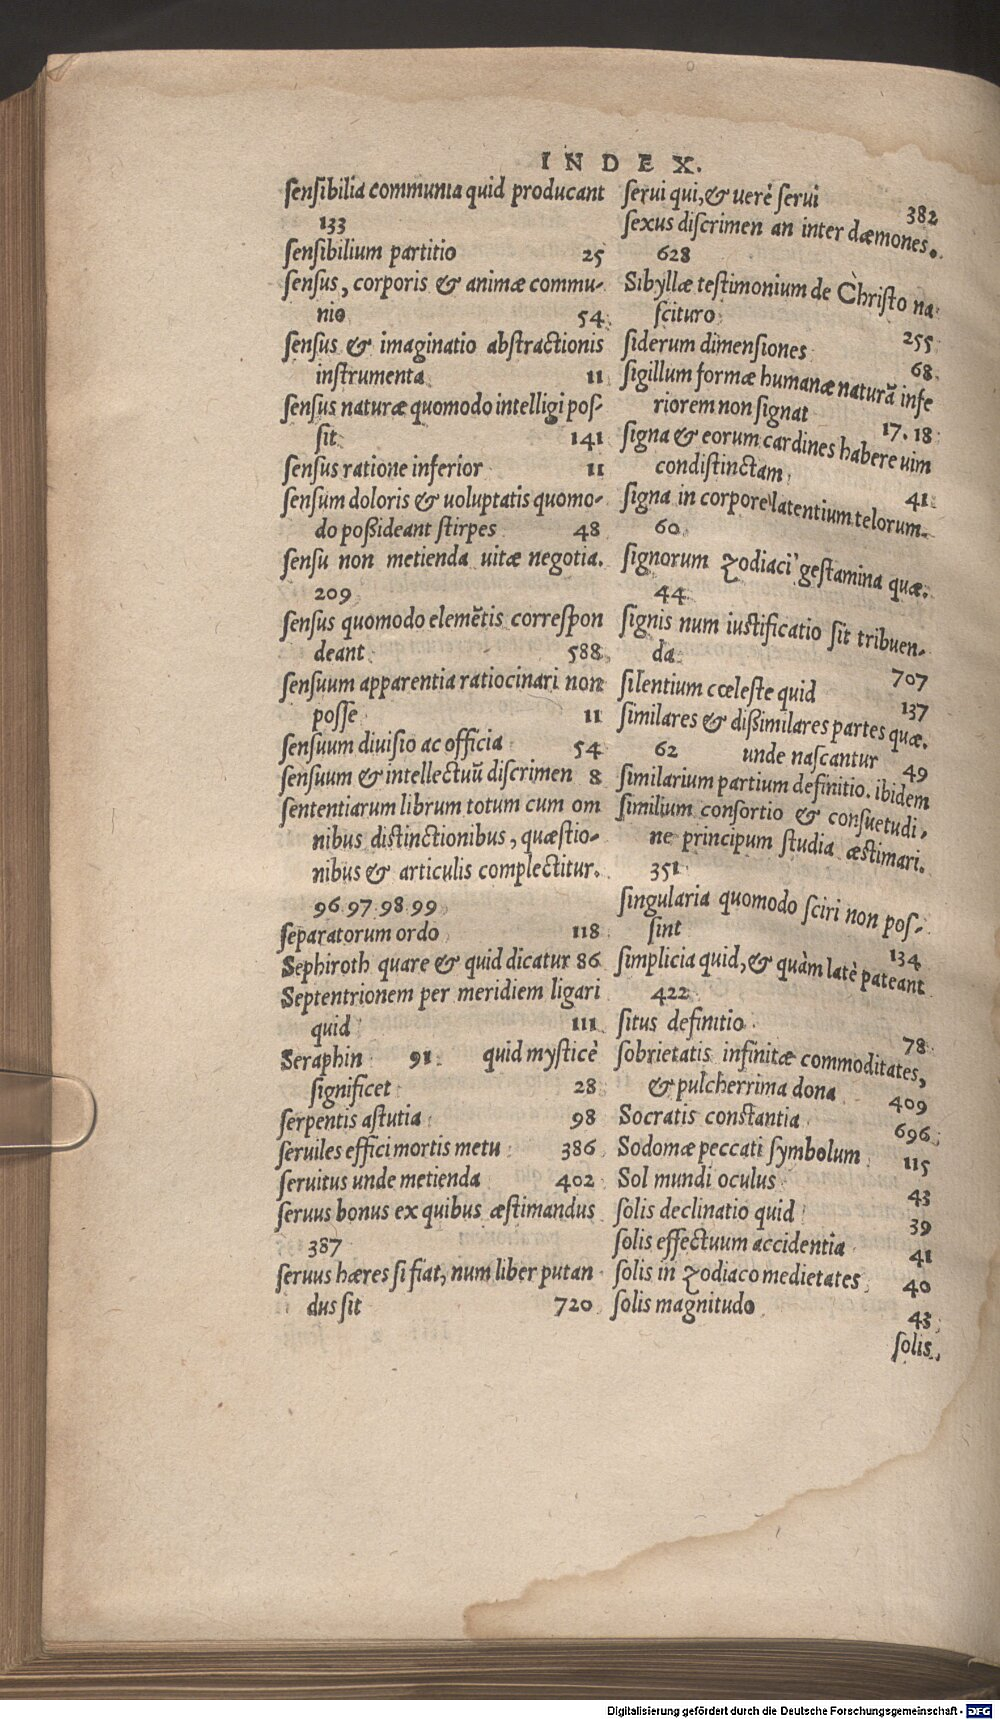 INDEX.
ſenſibilia communia quid producant
133
ſenſibilium partitio 25
ſenſus, corporis & animæ commu-
nio 54
ſenſus & imaginatio abſtractionis
inſtrumenta 11
ſenſus naturæ quomodo intelligi poſ-
ſit 141
ſenſus ratione inferior 11
ſenſum doloris & uoluptatis quomo-
do poßideant ſtirpes 48
ſenſu non metienda uitæ negotia.
209
ſenſus quomodo elemētis correſpon
deant 588
ſenſuum apparentia ratiocinari non
poſſe 11
ſenſuum diuiſio ac officia 54
ſenſuum & intellectuū diſcrimen 8
ſententiarum librum totum cum om
nibus diſtinctionibus, quæſtio-
nibus & articulis complectitur.
96 97 98 99
ſeparatorum ordo 118
Sephiroth quare & quid dicatur 86
Septentrionem per meridiem ligari
quid 111
Seraphin 91 quid myſticè
ſignificet 28
ſerpentis aſtutia 98
ſeruiles effici mortis metu 386
ſeruitus unde metienda 402
ſeruus bonus ex quibus æſtimandus
387
ſeruus hæres ſi fiat, num liber putan
dus ſit 720
ſerui qui, & uerè ſerui 382
ſexus diſcrimen an inter dæmones.
628
Sibyllæ teſtimonium de Chriſto na
ſcituro 255
ſiderum dimenſiones 68
ſigillum formæ humanæ naturā infe
riorem non ſignat 17. 18
ſigna & eorum cardines habere uim
condiſtinctam 41
ſigna in corpore latentium telorum.
60
ſignorum zodiaci geſtamina quæ.
44
ſignis num iuſtificatio ſit tribuen-
da 707
ſilentium cœleſte quid 137
ſimilares & dißimilares partes quæ.
62 unde naſcantur 49
ſimilarium partium definitio. ibidem
ſimilium conſortio & conſuetudi-
ne principum ſtudia æſtimari.
351
ſingularia quomodo ſciri non poſ-
ſint 134
ſimplicia quid, & quàm latè pateant
422
ſitus definitio 78
ſobrietatis infinitæ commoditates,
& pulcherrima dona 409
Socratis conſtantia 696
Sodomæ peccati ſymbolum 115
Sol mundi oculus 43
ſolis declinatio quid 39
ſolis effectuum accidentia 41
ſolis in zodiaco medietates 40
ſolis magnitudo 43
ſolis
Digitalisierung gefördert durch die Deutsche Forschungsgemeinschaft - DFG